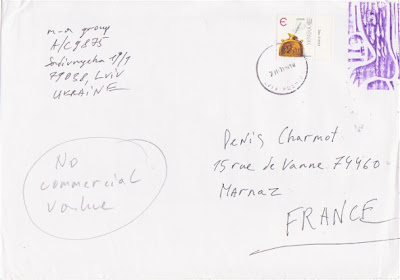 m-a group
A/C 9875
Sadivnycha 19/9
79038, Lviv
UKRAINE
Є
No
commercial
value
Denis Charmot
15 rue de Vanne 74460
Marnaz
FRANCE